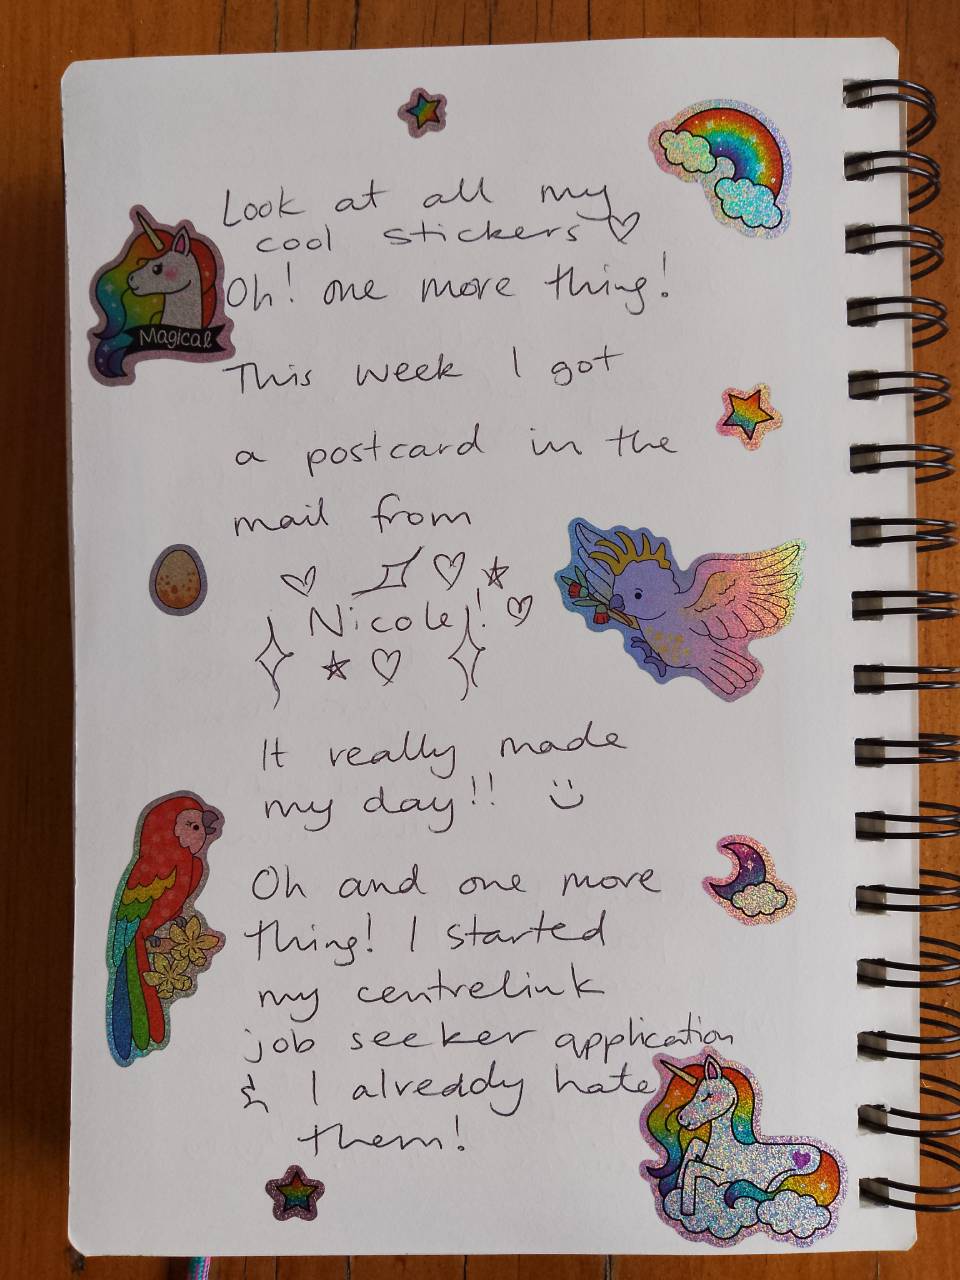 Look at all my
cool stickers ♡
Oh! one more thing!
Magical
This week I got
a postcard in the
mail from
Nicole!
It really made
my day!! :)
Oh and one more
thing! I started
my centrelink
job seeker application
& I already hate
them!